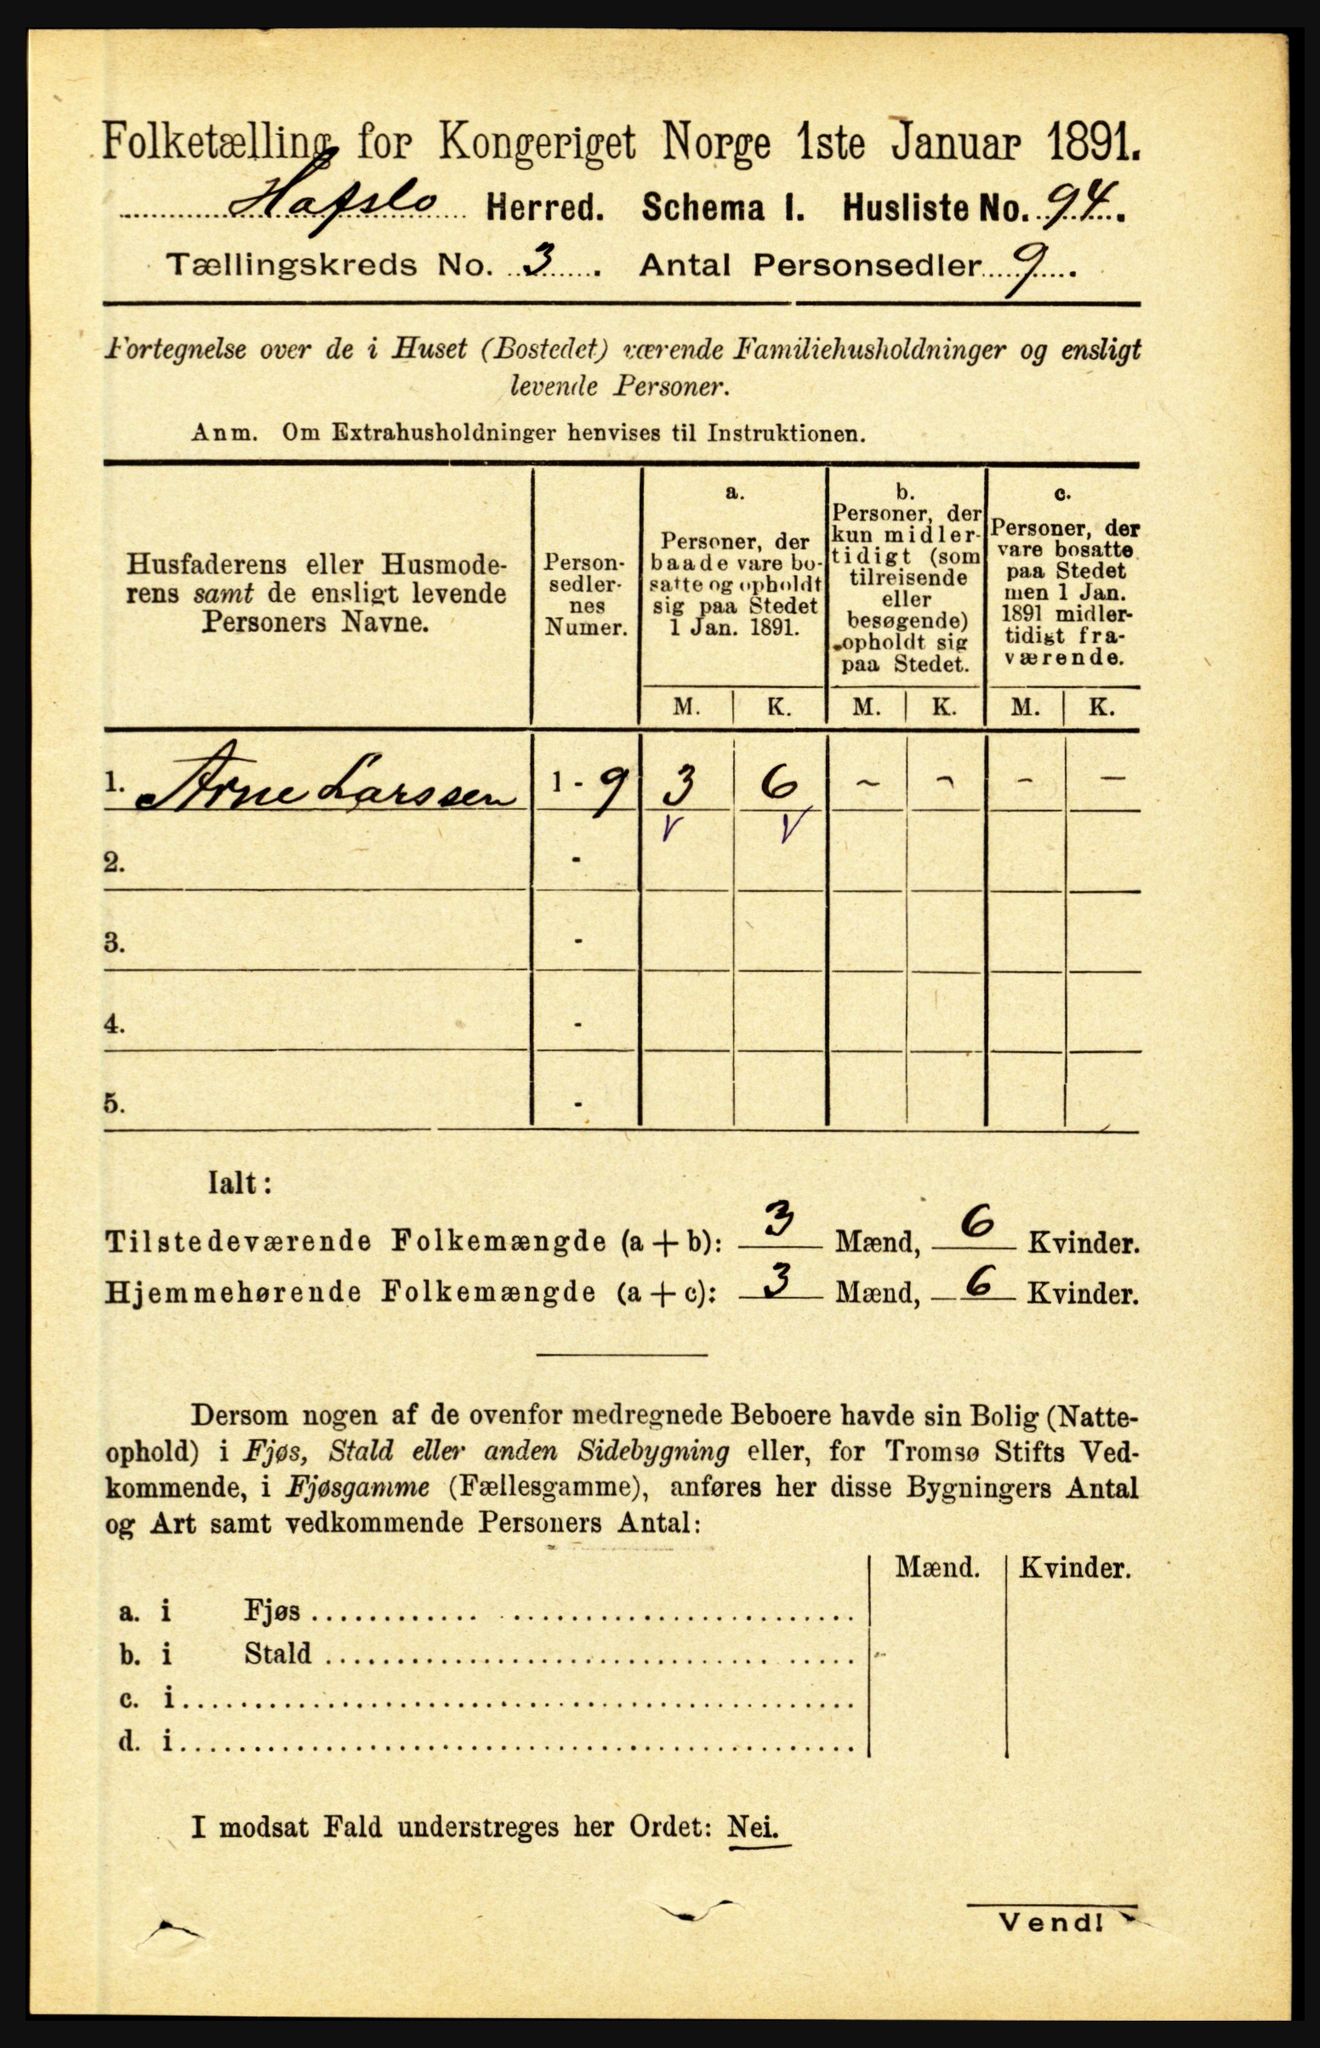 Folketælling for Kongeriget Norge 1ste Januar 1891.
Hafslo Herred. Schema I. Husliste No. 94.
Tællingskreds No. 3. Antal Personsedler 9.
Fortegnelse over de i Huset (Bostedet) værende Familiehusholdninger og ensligt
levende Personer.
Anm. Om Extrahusholdninger henvises til Instruktionen.
Husfaderens eller Husmode-
rens samt de ensligt levende
Personers Navne.
Person-
sedler-
nes
Numer.
a.
Personer, der
baade vare bo-
satte og opholdt
sig paa Stedet
1 Jan. 1891.
b.
Personer, der
kun midler-
tidigt (som
tilreisende
eller
besøgende)
opholdt sig
paa Stedet.
c.
Personer, der
vare bosatte
paa Stedet
men 1 Jan.
1891 midler-
tidigt fra-
værende.
M. K. M. K. M. K.
1. Arne Larssen 1 - 9 3 6 - - - -
V V
2. -
3. -
4. -
5. -
Ialt:
Tilstedeværende Folkemængde (a + b): 3 Mænd, 6 Kvinder.
Hjemmehørende Folkemængde (a + c): 3 Mænd, 6 Kvinder.
Dersom nogen af de ovenfor medregnede Beboere havde sin Bolig (Natte-
ophold) i Fjøs, Stald eller anden Sidebygning eller, for Tromsø Stifts Ved-
kommende, i Fjøsgamme (Fællesgamme), anføres her disse Bygningers Antal
og Art samt vedkommende Personers Antal:
Mænd. Kvinder.
a. i Fjøs
b. i Stald
c. i
d. i
I modsat Fald understreges her Ordet: Nei.
Vend!